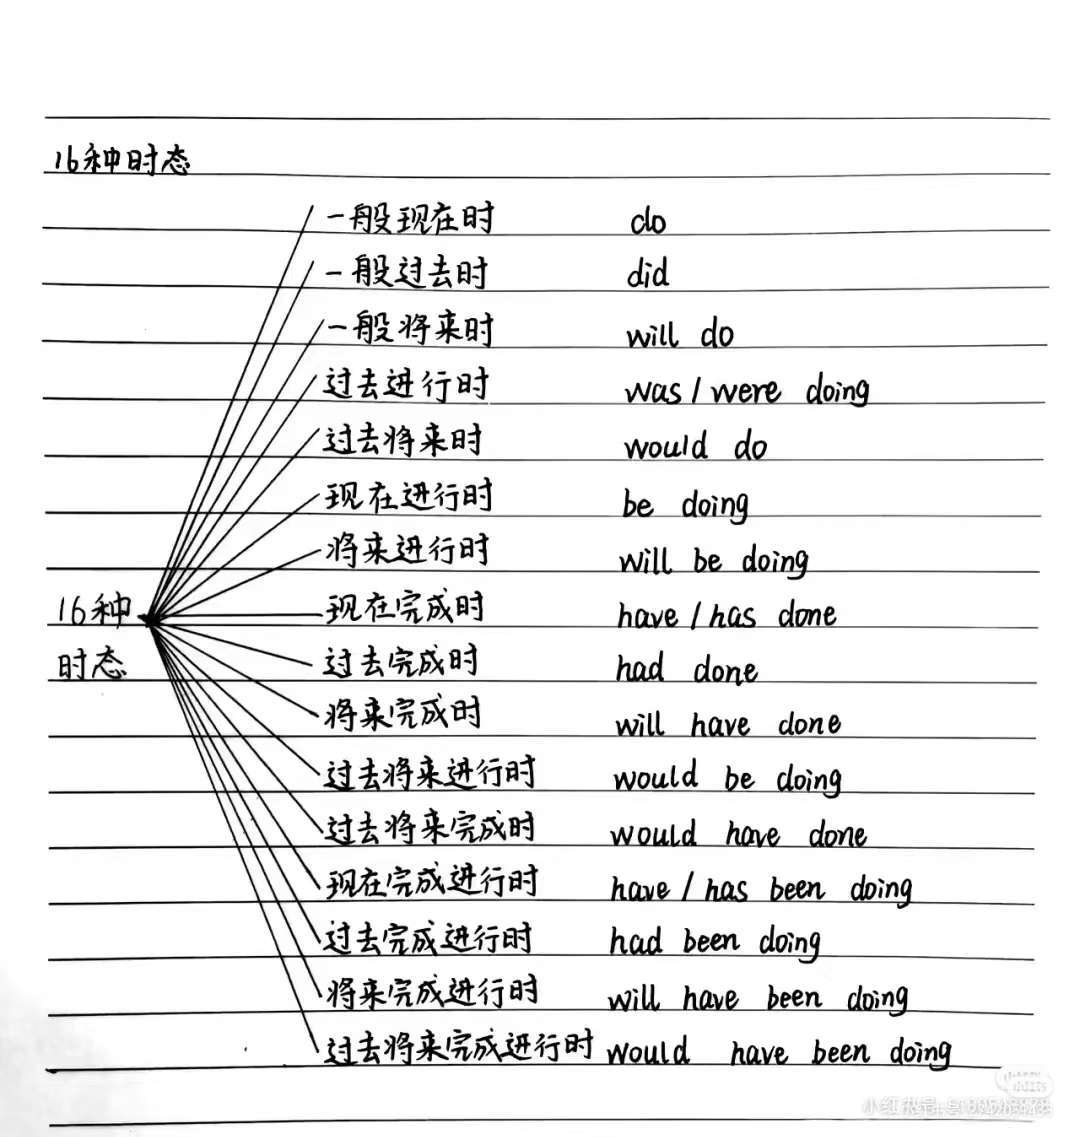 16种时态
一般现在时 do
一般过去时 did
一般将来时 will do
过去进行时 was/were doing
过去将来时 would do
现在进行时 be doing
将来进行时 will be doing
16种 现在完成时 have/has done
时态 过去完成时 had done
将来完成时 will have done
过去将来进行时 would be doing
过去将来完成时 would have done
现在完成进行时 have/has been doing
过去完成进行时 had been doing
将来完成进行时 will have been doing
过去将来完成进行时 would have been doing
小红书号